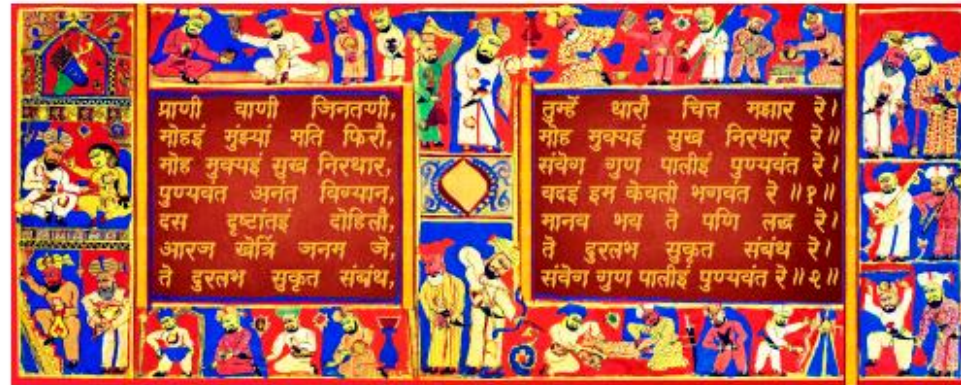 प्राणी वाणी जिनतणी,
मोहइं मुंझ्यां मति फिरौ,
मोह मुक्यइं सुख निरधार,
पुण्यवंत अनंत विग्यान,
दस दृष्टातइं दोहिलौ,
आरज खेत्रिं जनम जे,
ते दुरलभ सुकृत संबंध,
तुम्हें धारौ चित्त मझार रे।
मोह मुक्यइं सुख निरधार रे॥
संवेग गुण पालीइं पुण्यवंत रे।
वदइं इम केवली भगवंत रे॥१॥
मानव भव ते पणि लद्ध रे।
ते दुरलभ सुकृत संबंध रे।
संवेग गुण पालीइं पुण्यवंत रे॥२॥